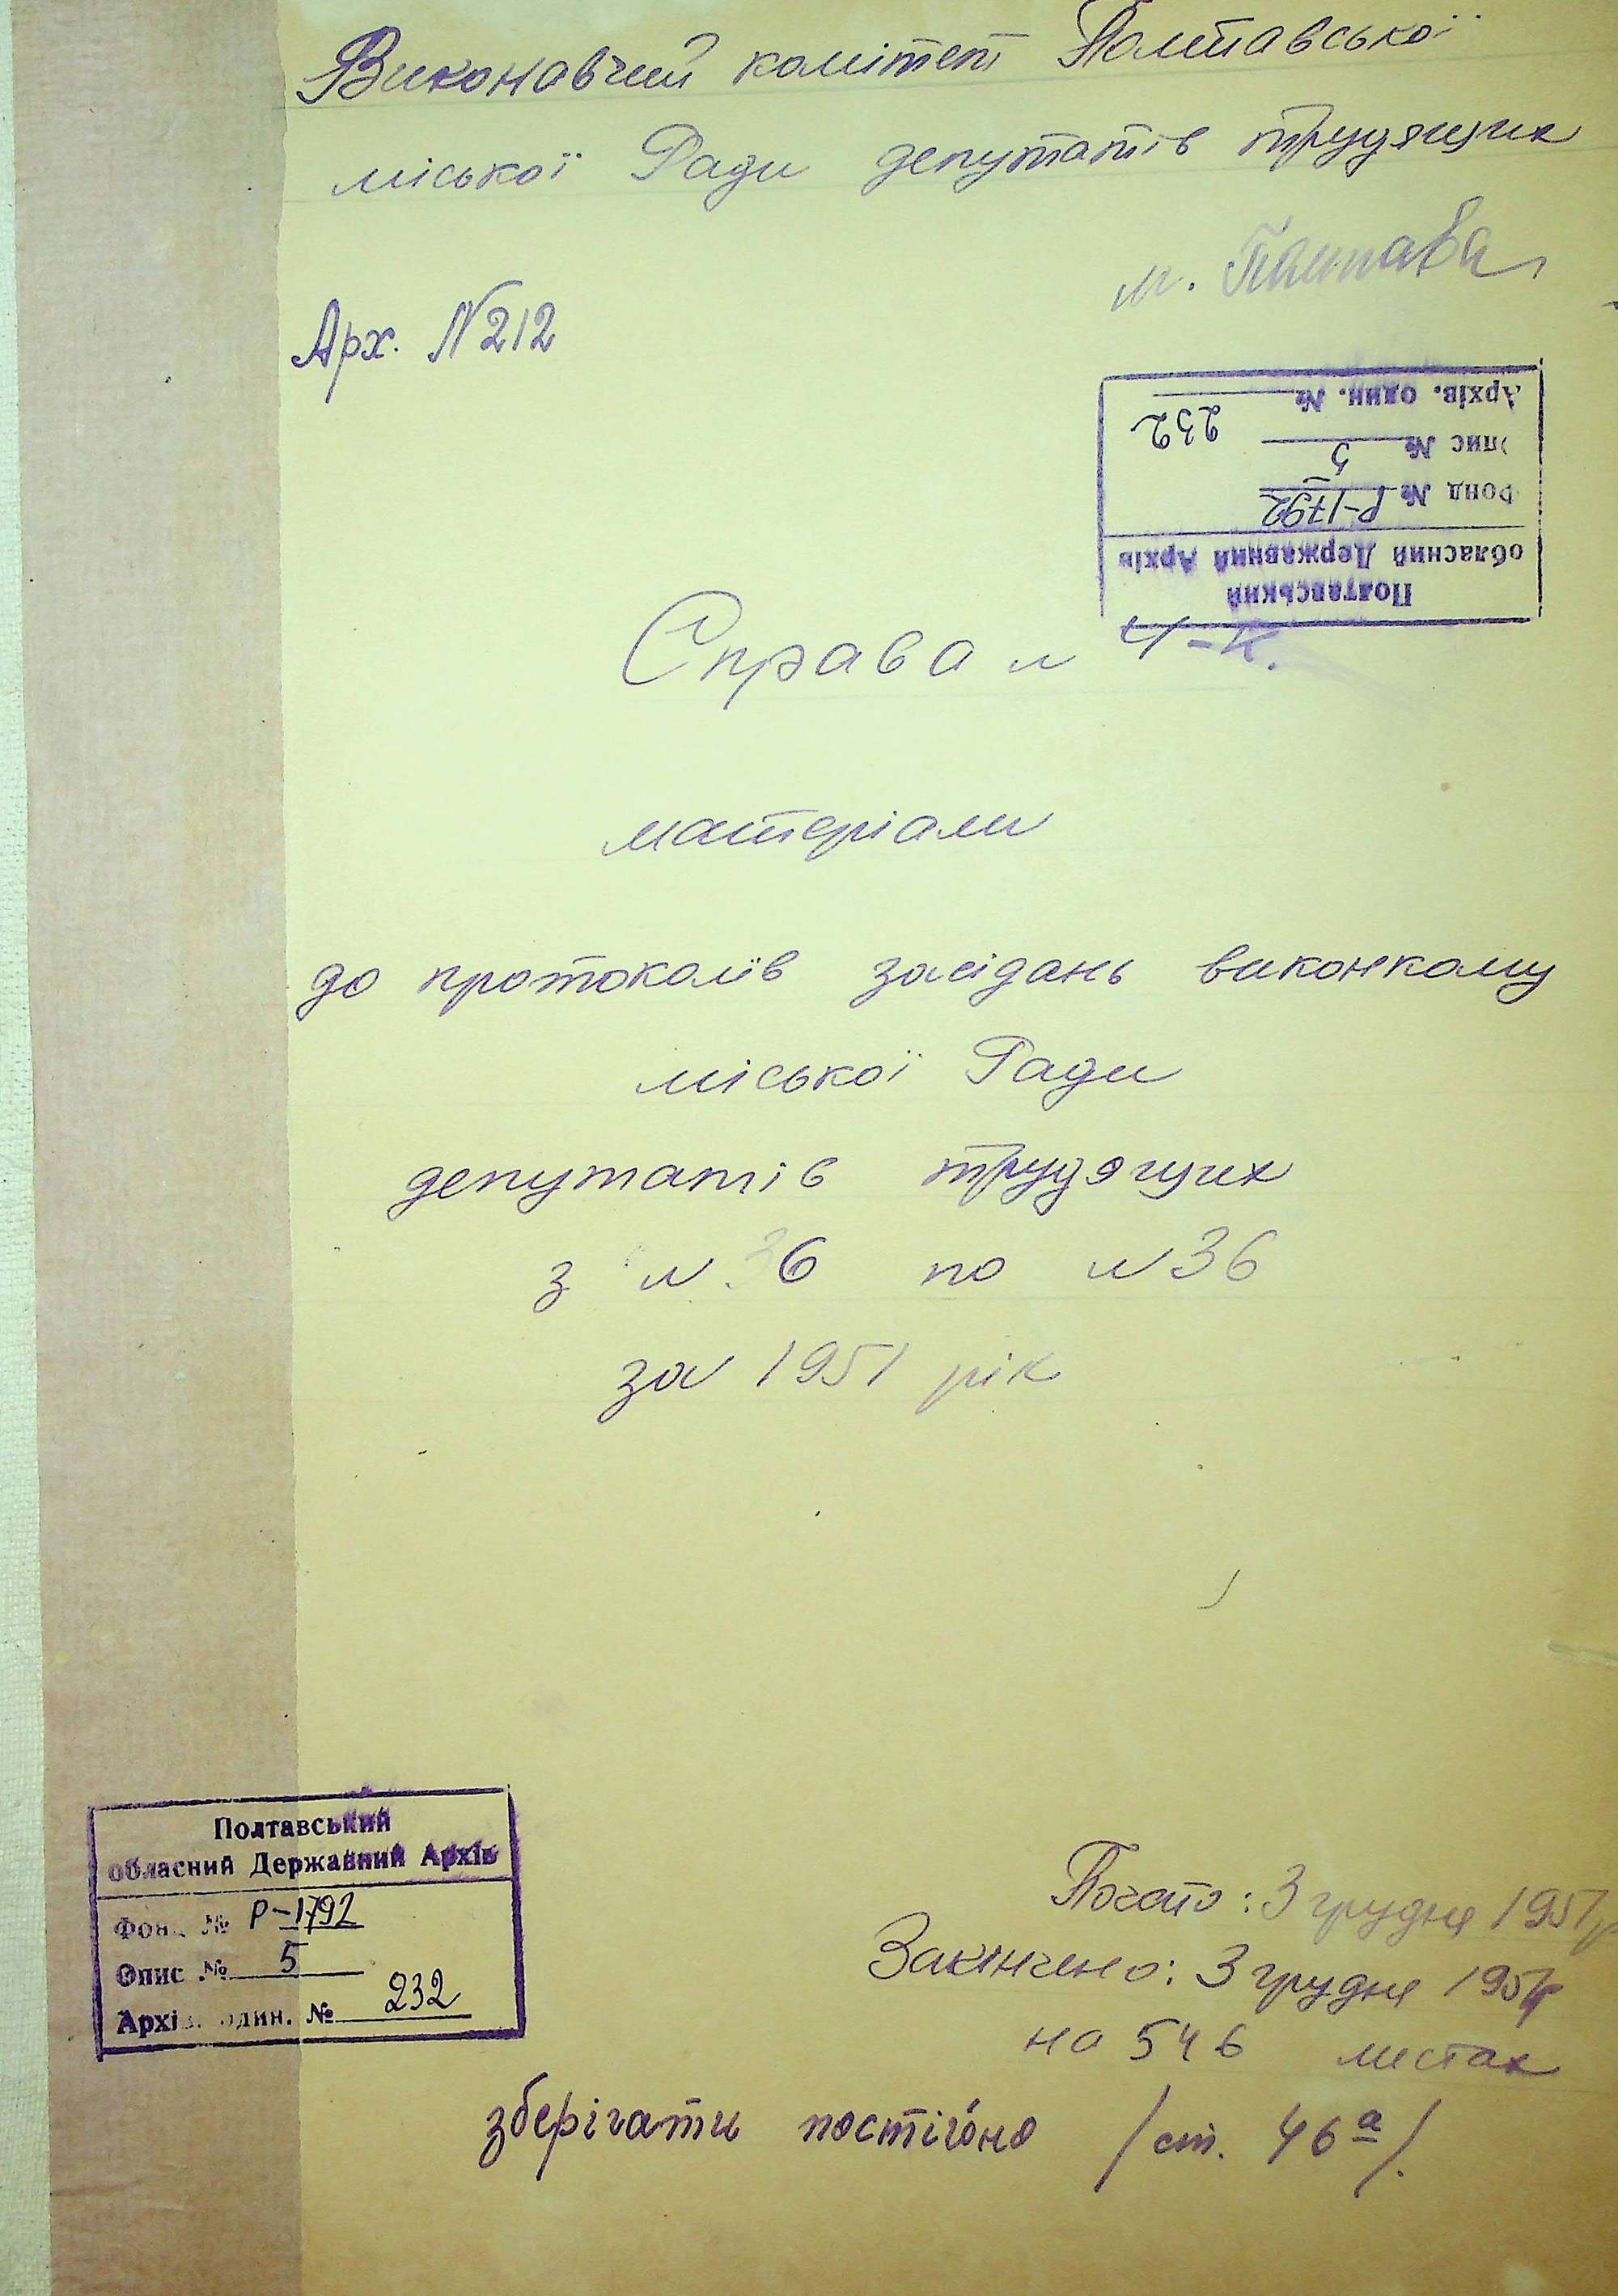 Виконавчий комітет Полтавської
міської Ради депутатів трудящих
м. Полтава
Арх. №212
Полтавський
обласний Державний Архів
Фонд № Р-1792
Опис № 5
Архів. один. № 232
Справа № 4-К.
матеріали
до протоколів засідань виконкому
міської Ради
депутатів трудящих
з № 36 по № 36
за 1951 рік
Полтавський
обласний Державний Архів
Фонд № Р-1792
Опис № 5
Архів. один. № 232
Почато: 3 грудня 1951р
Закінчено: 3 грудня 1951р
на 546 листах
зберігати постійно /ст. 46а/.